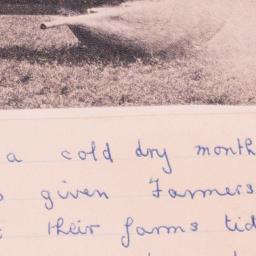 a cold dry month
given Farmers
their farms tid